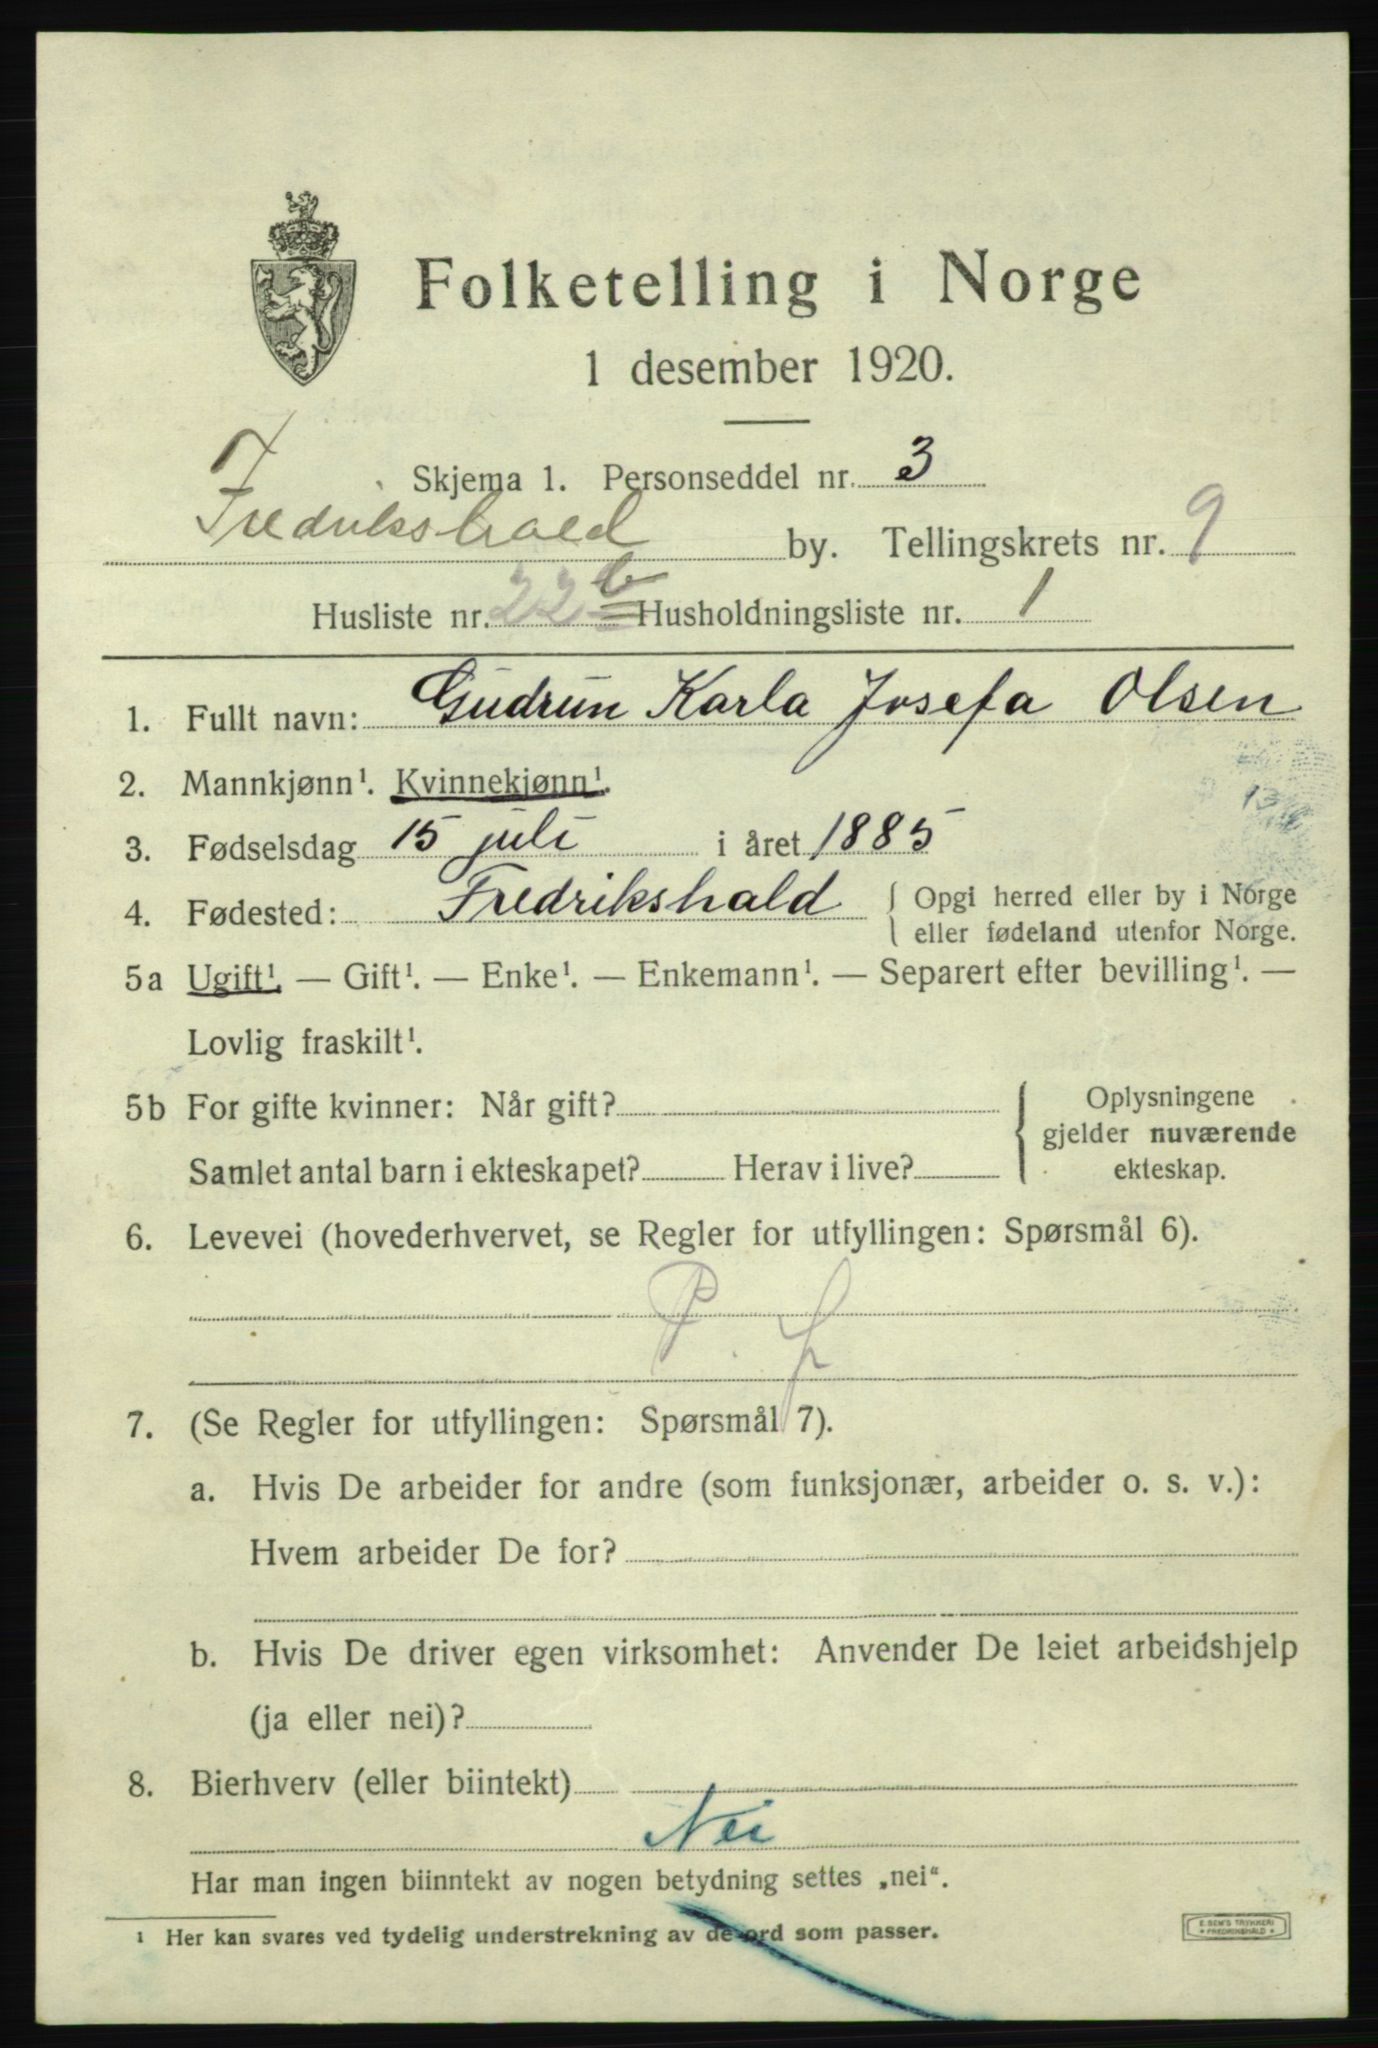 Folketelling i Norge
1 desember 1920.
Skjema 1. Personseddel nr. 3
Fredrikshald by. Tellingskrets nr. 9
Husliste nr. 22 b Husholdningsliste nr. 1
1. Fullt navn: Gudrun Karla Josefa Olsen
2. Mannkjønn¹. Kvinnekjønn¹.
3. Fødselsdag 15 juli i året 1885
4. Fødested: Fredrikshald { Opgi herred eller by i Norge
eller fødeland utenfor Norge.
5a Ugift¹. — Gift¹. — Enke¹. — Enkemann¹. — Separert efter bevilling¹. —
Lovlig fraskilt¹.
5b For gifte kvinner: Når gift? { Oplysningene
gjelder nuværende
Samlet antal barn i ekteskapet? Herav i live? ekteskap.
6. Levevei (hovederhvervet, se Regler for utfyllingen: Spørsmål 6).
P. f
7. (Se Regler for utfyllingen: Spørsmål 7).
a. Hvis De arbeider for andre (som funksjonær, arbeider o. s. v.):
Hvem arbeider De for?
b. Hvis De driver egen virksomhet: Anvender De leiet arbeidshjelp
(ja eller nei)?
8. Bierhverv (eller biintekt)
Nei
Har man ingen biinntekt av nogen betydning settes „nei“.
¹ Her kan svares ved tydelig understrekning av de ord som passer.
E. SEM'S TRYKKERI
FREDRIKSHALD